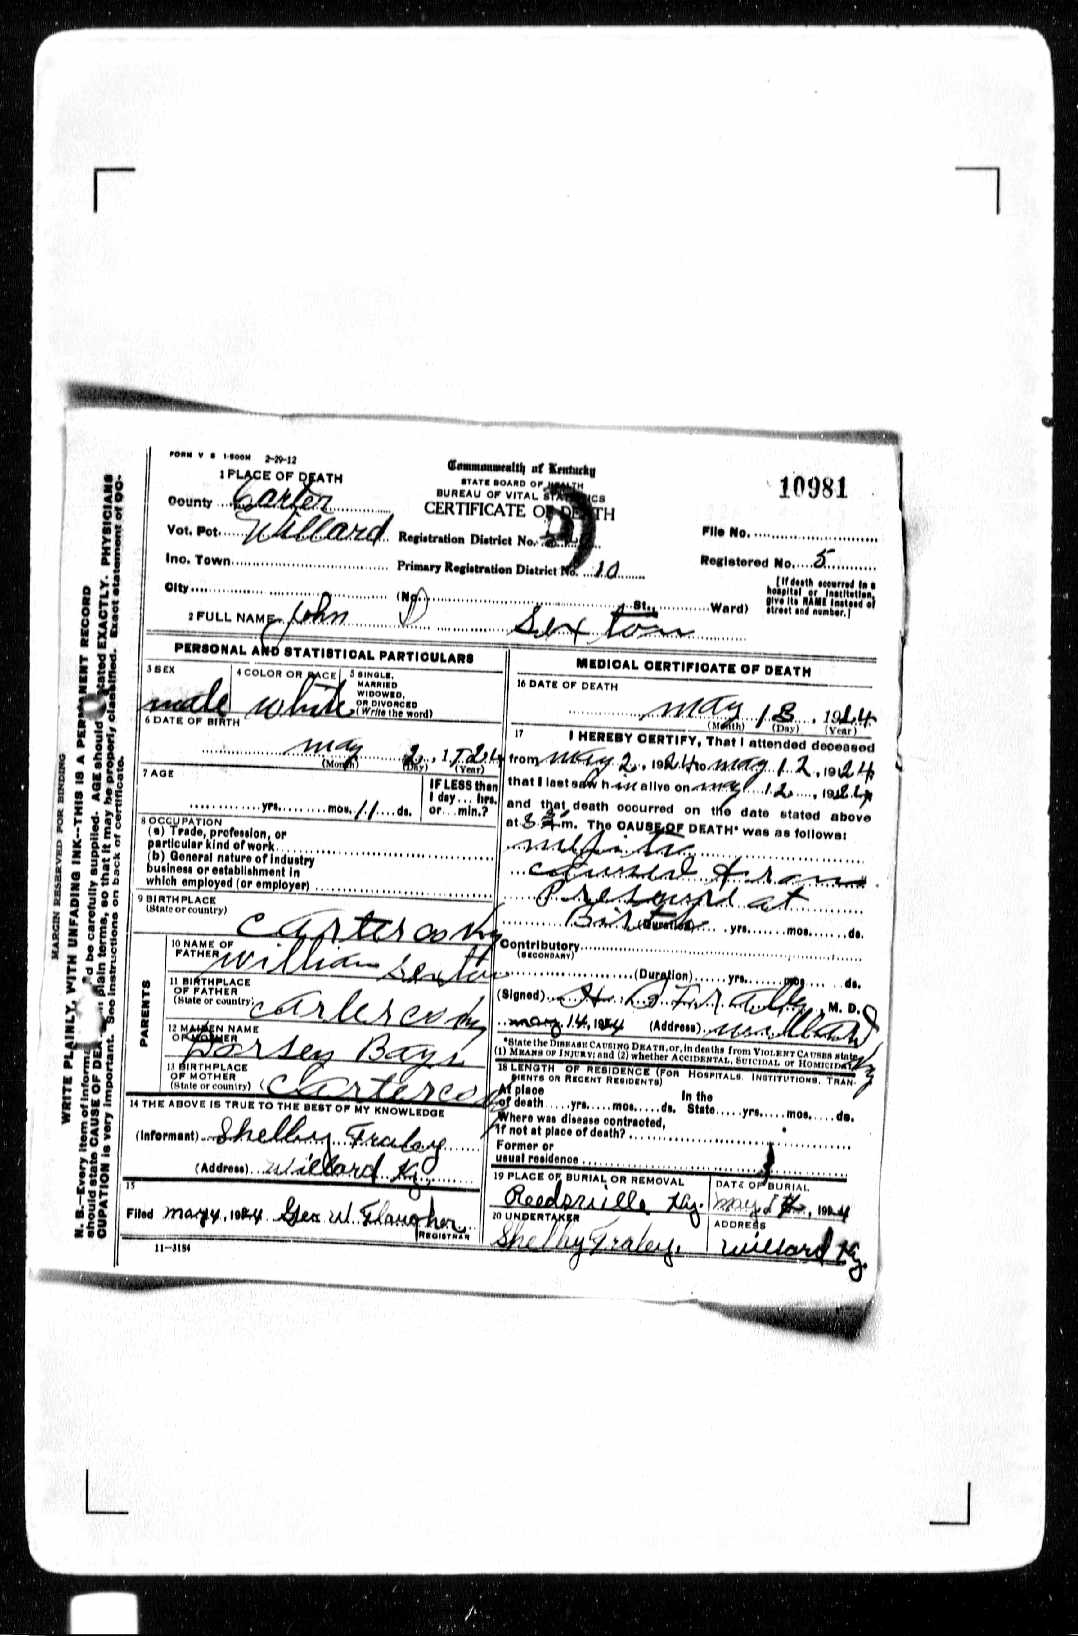 FORM V S 1-500M 2-29-12
1 PLACE OF DEATH
County Carter
Vot. Pct. Willard
Inc. Town
City
Commonwealth of Kentucky
STATE BOARD OF HEALTH
BUREAU OF VITAL STATISTICS
CERTIFICATE OF DEATH
Registration District No.
Primary Registration District No. 10
(No. St., Ward)
10981
File No.
Registered No. 5
[If death occurred in a
hospital or institution,
give its NAME instead of
street and number.]
2 FULL NAME John D Sexton
PERSONAL AND STATISTICAL PARTICULARS
3 SEX
male
4 COLOR OR RACE
white
5 SINGLE,
MARRIED
WIDOWED,
OR DIVORCED
(Write the word)
6 DATE OF BIRTH
may 2, 1924
(Month) (Day) (Year)
7 AGE
yrs. mos. 11 ds.
IF LESS than
1 day... hrs.
or... min.?
8 OCCUPATION
(a) Trade, profession, or
particular kind of work
(b) General nature of industry
business or establishment in
which employed (or employer)
9 BIRTHPLACE
(State or country)
Carter co Ky
PARENTS
10 NAME OF
FATHER
William Sexton
11 BIRTHPLACE
OF FATHER
(State or country)
Carter co Ky
12 MAIDEN NAME
OF MOTHER
Dorsey Bays
13 BIRTHPLACE
OF MOTHER
(State or country)
Carter co
14 THE ABOVE IS TRUE TO THE BEST OF MY KNOWLEDGE
(Informant) Shelby Fraley
(Address) Willard Ky.
15
Filed may 14, 1924 Geo W. Flaugher
REGISTRAR
11-3184
MEDICAL CERTIFICATE OF DEATH
16 DATE OF DEATH
may 13, 1924
(Month) (Day) (Year)
17 I HEREBY CERTIFY, That I attended deceased
from may 2, 1924 to may 12, 1924
that I last saw h im alive on may 12, 1924
and that death occurred on the date stated above
at m. The CAUSE OF DEATH* was as follows:
caused from
Presure at
Birth
(Duration) yrs. mos. ds.
Contributory
(SECONDARY)
(Duration) yrs. mos. ds.
(Signed) Fraley M. D.
may 14, 1924 (Address) Willard Ky
*State the DISEASE CAUSING DEATH, or, in deaths from VIOLENT CAUSES state
(1) MEANS OF INJURY; and (2) whether ACCIDENTAL, SUICIDAL or HOMICIDAL
18 LENGTH OF RESIDENCE (FOR HOSPITALS, INSTITUTIONS, TRAN-
SIENTS OR RECENT RESIDENTS)
At place
of death yrs. mos. ds.
In the
State yrs. mos. ds.
Where was disease contracted,
if not at place of death?
Former or
usual residence
19 PLACE OF BURIAL OR REMOVAL
Reedsville Ky.
DATE OF BURIAL
may 14, 1924
20 UNDERTAKER
Shelby Fraley.
ADDRESS
Willard Ky.
MARGIN RESERVED FOR BINDING
WRITE PLAINLY, WITH UNFADING INK--THIS IS A PERMANENT RECORD
N. B.--Every item of information should be carefully supplied. AGE should be stated EXACTLY. PHYSICIANS
should state CAUSE OF DEATH in plain terms, so that it may be properly classified. Exact statement of OC-
CUPATION is very important. See instructions on back of certificate.